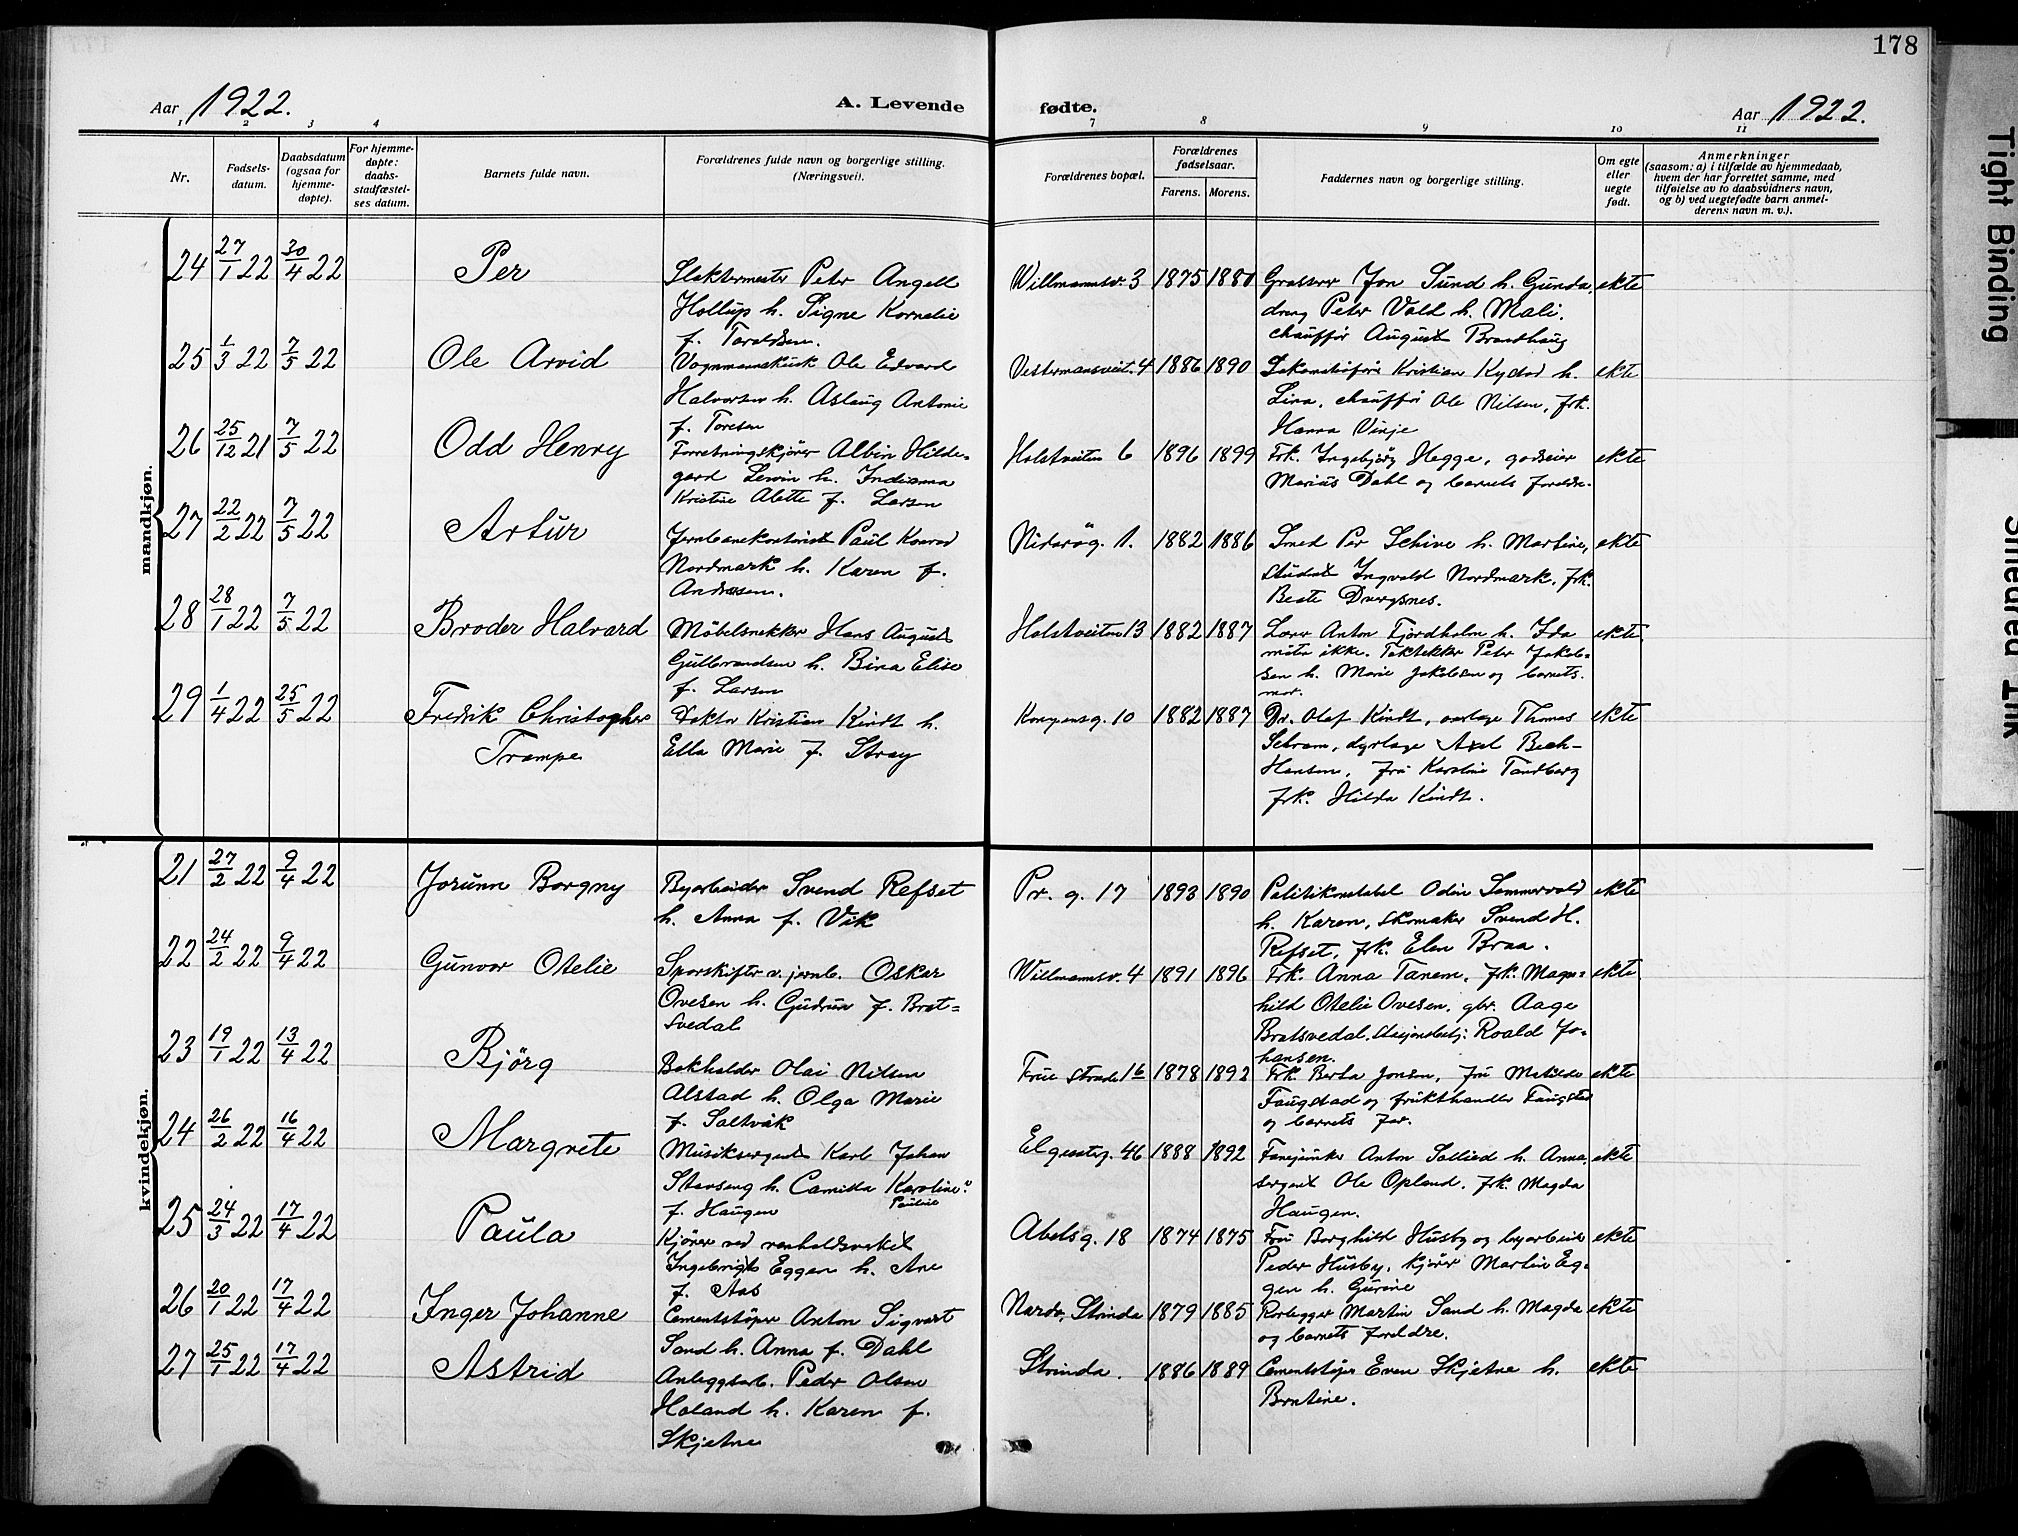 178
Aar 1922. A. Levende fødte. Aar 1922.
1 2 3 4 7 8 9 10 11
Nr.
Fødsels-
datum.
Daabsdatum
(ogsaa for
hjemme-
døpte).
For hjemme-
døpte:
daabs-
stadfæstel-
ses datum.
Barnets fulde navn.
Forældrenes fulde navn og borgerlige stilling.
(Næringsvei).
Forældrenes bopæl.
Forældrenes
fødselsaar.
Farens. Morens.
Faddernes navn og borgerlige stilling.
Om egte
eller
uegte
født.
Anmerkninger
(saasom: a) i tilfælde av hjemmedaab,
hvem der har forrettet samme, med
tilføielse av to daabsvidners navn,
og b) ved uegtefødte barn anmel-
derens navn m. v.).
mandkjøn.
24 27/1 22 30/4 22 Per
Slaktermester Peter Angell
Hollup h. Signe Kornelie
f. Toraldsen.
Willmannsv. 3 1875 1880
Grosserer Jon Sund h. Gunda,
dreng Peter Vold h. Mali,
chauffør August Brandhaug
ekte
25 1/3 22 7/5 22 Ole Arvid
Vognmannskusk Ole Edvard
Halvorsen h. Aslaug Antonie
f. Toresen
Vestermansveit. 4 1886 1890
Kristian h.
Lina, chauffør Ole Nilsen, frk.
Hanna Vinje
ekte
26 25/12 21 7/5 22 Odd Henry
Forretningskjører Albin Hilde-
gard Lewin h. Indianna
Kristine Alette f. Larsen
Holstveiten 6 1896 1899
Frk. Ingebjørg Hegge, godseier
Marius Dahl og barnets foreldre.
ekte
27 22/2 22 7/5 22 Artur
Jernbanekontorist Paul Konrad
Nordmark h. Karen f.
Andresen.
Nidarøg. 1. 1882 1886
Smed Per Schive h. Martine,
student Ingvald Nordmark, frk.
Beate Dvergsnes.
ekte
28 28/1 22 7/5 22 Broder Halvard
Møbelsnekker Hans August
Gulbrandsen h. Bina Elise
f. Larsen
Holstveiten 13 1882 1887
Lærer Anton Fjordholm h. Ida
møter ikke. Taktekker Peter Jakob-
sen h. Marie Jakobsen og barnets
mor.
ekte
29 1/4 22 25/5 22 Fredrik Christopher
Trampe
Doktor Kristian Kindt h.
Ella Marie f. Stray
Kongensg. 10 1882 1887
Dr. Olaf Kindt, overlæge Thomas
Schram, dyrlæge Axel Bech-
Hansen, fru Karoline Tandberg
frk. Hilda Kindt.
ekte
kvindekjøn.
21 27/2 22 9/4 22 Jorunn Borgny
Byarbeider Svend Refset
h. Anna f. Vik
Pr. g. 17 1893 1890
Politikonstabel Odin Sommervold
h. Karen, skomaker Svend H.
Refset, frk. Elen Braa.
ekte
22 24/2 22 9/4 22 Gunvor Otelie
Sporskifter v. jernb. Oskar
Ovesen h. Gudrun f. Brat-
svedal
Willmannsv. 4 1891 1896
Frk. Anna Tanem, frk. Magn-
hild Otelie Ovesen, gbr. Aage
Bratsvedal, stasjonsbetj. Roald Jo-
hansen.
ekte
23 19/1 22 13/4 22 Bjørg
Bokholder Olai Nilsen
Alstad h. Olga Marie
f. Saltvik
Frue strade 16 1878 1892
Frk. Berta Jonsen, fru
Faugstad og frukthandler Faugstad
og barnets far.
ekte
24 26/2 22 16/4 22 Margrete
Musiksergeant Karl Johan
Stavseng h. Camilla Karoline
Pauline
f. Haugen
Elgesæterg. 46 1888 1892
Fanejunker Anton Sollied h. Anna,
sergent Ole Opland, frk. Magda
Haugen.
ekte
25 24/3 22 17/4 22 Paula
Kjører ved renholdsverket
Ingebrigt Eggen h. Ane
f. Aas
Abelsg. 18 1874 1875
Fru Borghild Husby og byarbeider
Peder Husby, kjører Martin Eg-
gen h. Gurine
ekte
26 20/1 22 17/4 22 Inger Johanne
Cementstøper Anton Sigvart
Sand h. Anna f. Dahl
Nardo, Strinda 1879 1885
Rørlegger Martin Sand h. Magda
og barnets foreldre.
ekte
27 25/1 22 17/4 22 Astrid
Anleggsarb. Peder Olsen
Holand h. Karen f.
Skjetne
Strinda. 1886 1889
Cementstøper Even Skjetne h.
Berntine.
ekte
Tight Binding
Smeared Ink